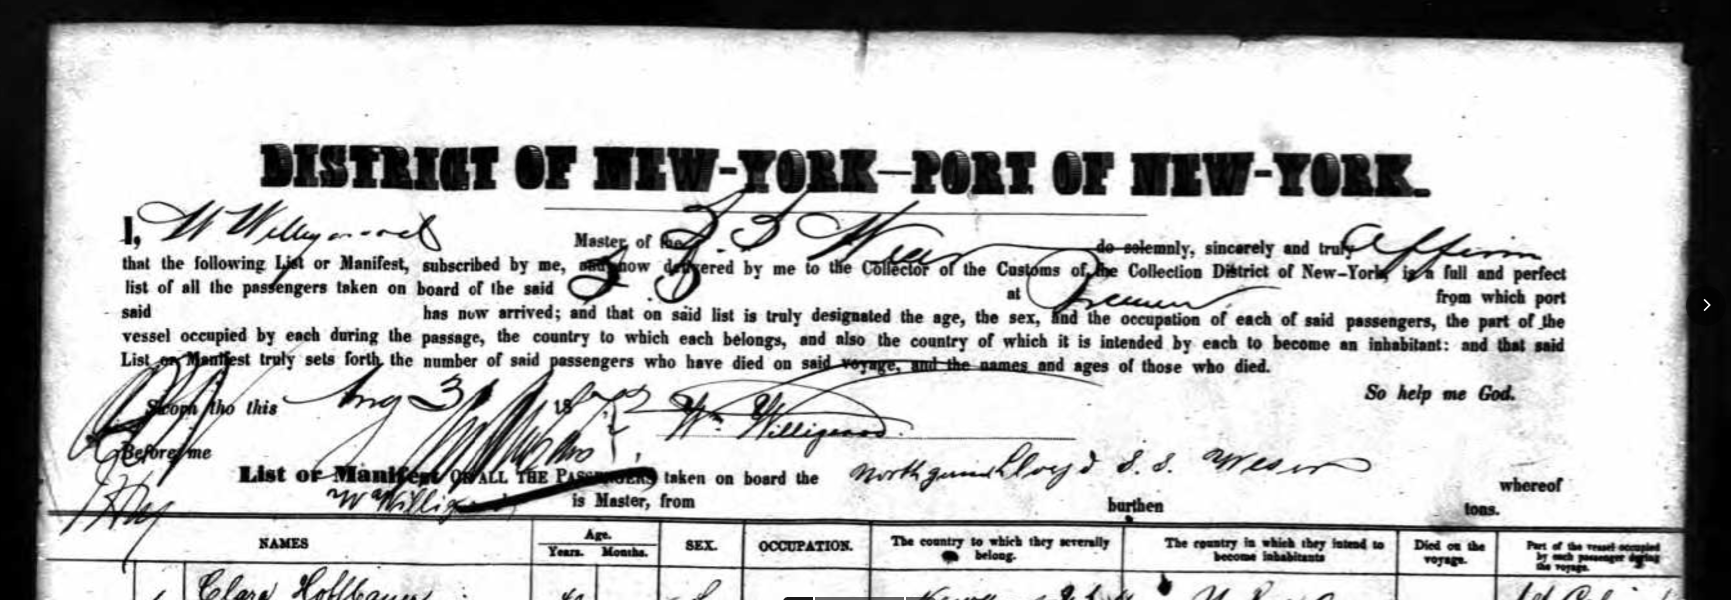 DISTRICT OF NEW-YORK—PORT OF NEW-YORK.
I, W Willigerod Master of the S. S Weser do solemnly, sincerely and truly affirm
that the following List or Manifest, subscribed by me, and now delivered by me to the Collector of the Customs of the Collection District of New-York, is a full and perfect
list of all the passengers taken on board of the said S. S. at Bremen from which port
said has now arrived; and that on said list is truly designated the age, the sex, and the occupation of each of said passengers, the part of the
vessel occupied by each during the passage, the country to which each belongs, and also the country of which it is intended by each to become an inhabitant: and that said
List or Manifest truly sets forth the number of said passengers who have died on said voyage, and the names and ages of those who died.
So help me God.
this Aug 3 18 W. Willigerod.
Before me
List or Manifest OF ALL THE PASSENGERS taken on board the Lloyd S. S. Weser whereof
W Willigerod is Master, from burthen tons.
NAMES Age. SEX. OCCUPATION. The country to which they severally belong. The country in which they intend to become inhabitants Died on the voyage. Part of the vessel occupied by each passenger during the voyage.
Years. Months.
Clara